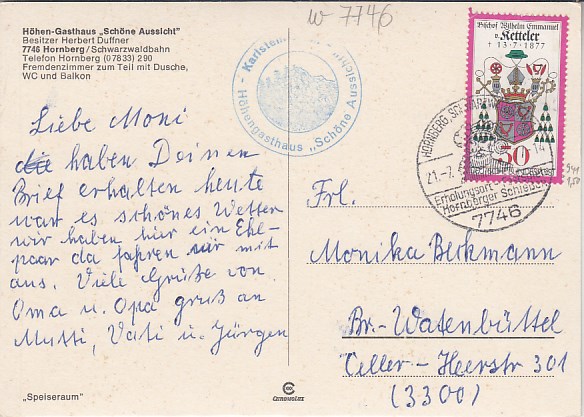 w 7746
Höhen-Gasthaus „Schöne Aussicht"
Besitzer Herbert Duffner
7746 Hornberg/Schwarzwaldbahn
Telefon Hornberg (07833) 290
Fremdenzimmer zum Teil mit Dusche,
WC und Balkon
Karlstein
Höhengasthaus „Schöne Aussicht"
Bischof Wilhelm Emmanuel
v. Ketteler
† 13·7·1877
50
HORNBERG, SCHWARZW
21.-7.
-14
Erholungsort
Hornberger Schießen
7746
Liebe Moni
die haben Deinen
Brief erhalten heute
war es schönes Wetter
wir haben hier ein Ehe-
paar da fahren wir mit
aus. Viele Grüße von
Oma u. Opa gruß an
Mutti, Vati u. Jürgen
Frl.
Monika Beckmann
Br.-Watenbüttel
Celler-Heerstr 301
(3300)
„Speiseraum"